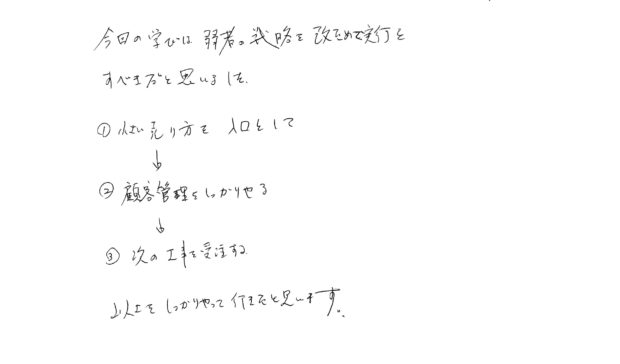 今回の学びは弱者の戦略を改めて実行を
すべきだと思いました。
① 小さい売り方を 入口として
↓
② 顧客管理をしっかりやる
↓
③ 次の工事を受注する
以上をしっかりやって行きたいと思います。